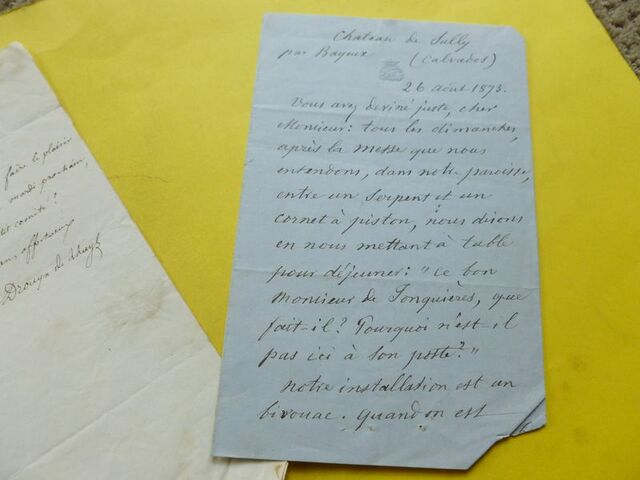 faire le plaisir
mardi prochain,
comité?
affectueux
Drouyn de Lhuys
Chateau de Sully
par Bayeux (Calvados)
26 août 1873.
Vous avez deviné juste, cher
Monsieur: tous les dimanches,
après la messe que nous
entendons, dans notre paroisse,
entre un serpent et un
cornet à piston, nous disons
en nous mettant à table
pour déjeuner: "ce bon
Monsieur de Jonquières, que
fait-il? Pourquoi n'est-il
pas ici à son poste?"
notre installation est un
bivouac. quand on est